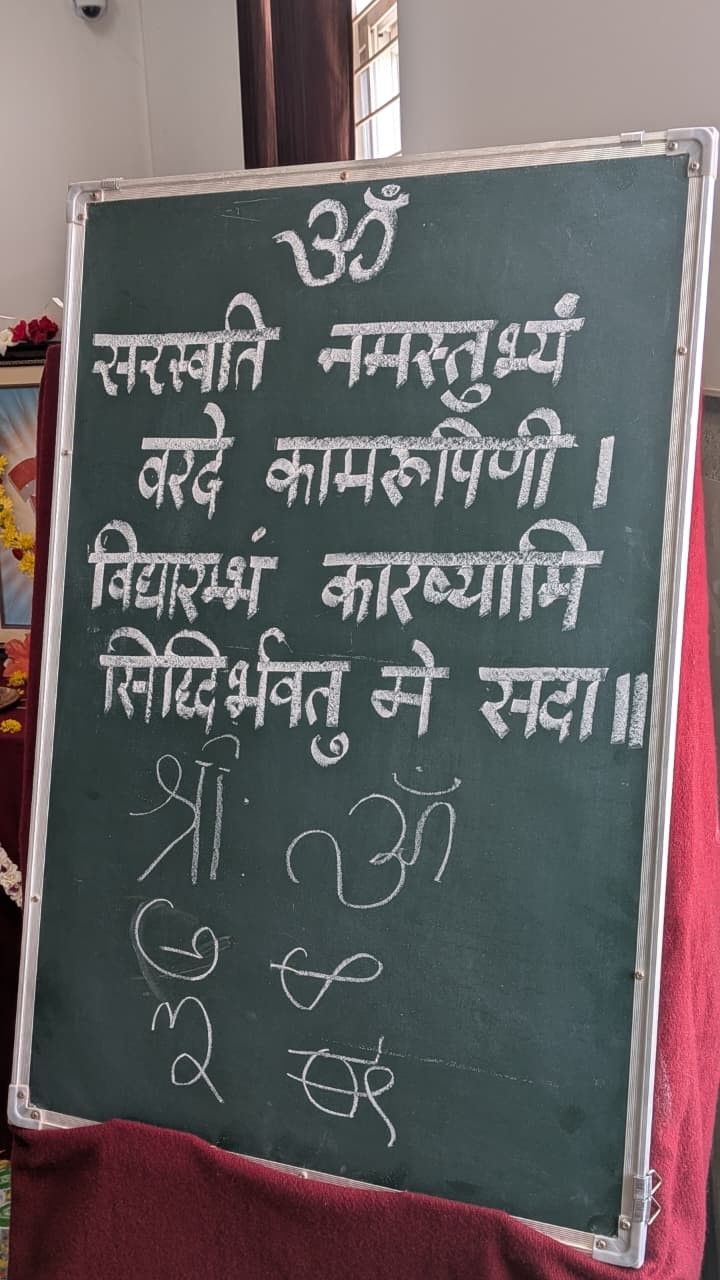 ॐ
सरस्वति नमस्तुभ्यं
वरदे कामरूपिणी ।
विद्यारम्भं कारष्यामि
सिद्धिर्भवतु मे सदा॥
श्री ॐ